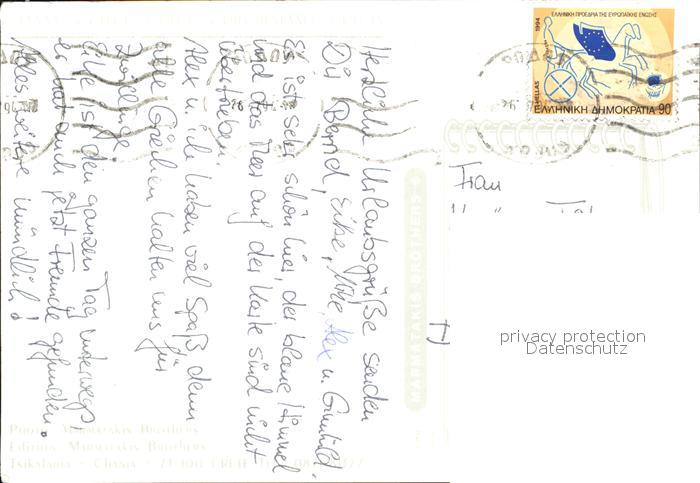 Herzliche Urlaubsgrüße senden
Dir Bernd, Eike, Mike, Alex u. Gunhild.
Es ist sehr schön hier, der blaue Himmel
und das Meer auf der Karte sind nicht
übertrieben.
Alex u. ich haben viel Spaß, denn
alle Griechen halten uns für
Zwillinge.
Eike ist den ganzen Tag unterwegs
er hat auch jetzt Freunde gefunden.
Alles weitere mündlich!
MARMATAKIS BROTHERS
ΕΛΛΗΝΙΚΗ ΠΡΟΕΔΡΙΑ ΤΗΣ ΕΥΡΩΠΑΪΚΗΣ ΕΝΩΣΗΣ
1994
HELLAS
ΕΛΛΗΝΙΚΗ ΔΗΜΟΚΡΑΤΙΑ 90
Frau
privacy protection
Datenschutz
Marmatakis Brothers
Marmatakis Brothers
Tsikalaria - Chania - 73 100 CRETE